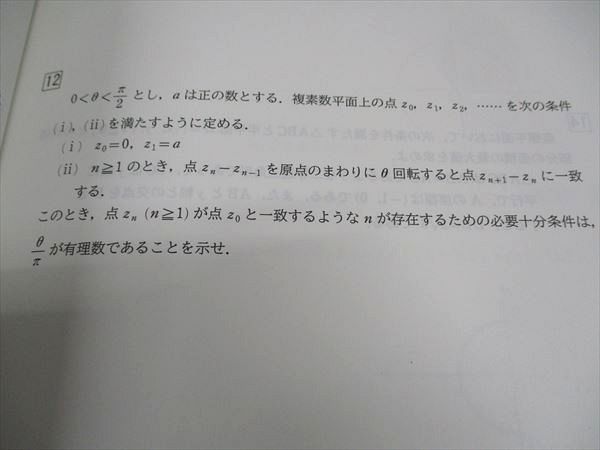 12
0<θ<π/2 とし，a は正の数とする．複素数平面上の点 z₀，z₁，z₂，…… を次の条件
(ⅰ)，(ⅱ)を満たすように定める．
(ⅰ) z₀=0，z₁=a
(ⅱ) n≧1 のとき，点 zₙ−zₙ₋₁ を原点のまわりに θ 回転すると点 zₙ₊₁−zₙ に一致
する．
このとき，点 zₙ (n≧1) が点 z₀ と一致するような n が存在するための必要十分条件は，
θ/π が有理数であることを示せ．